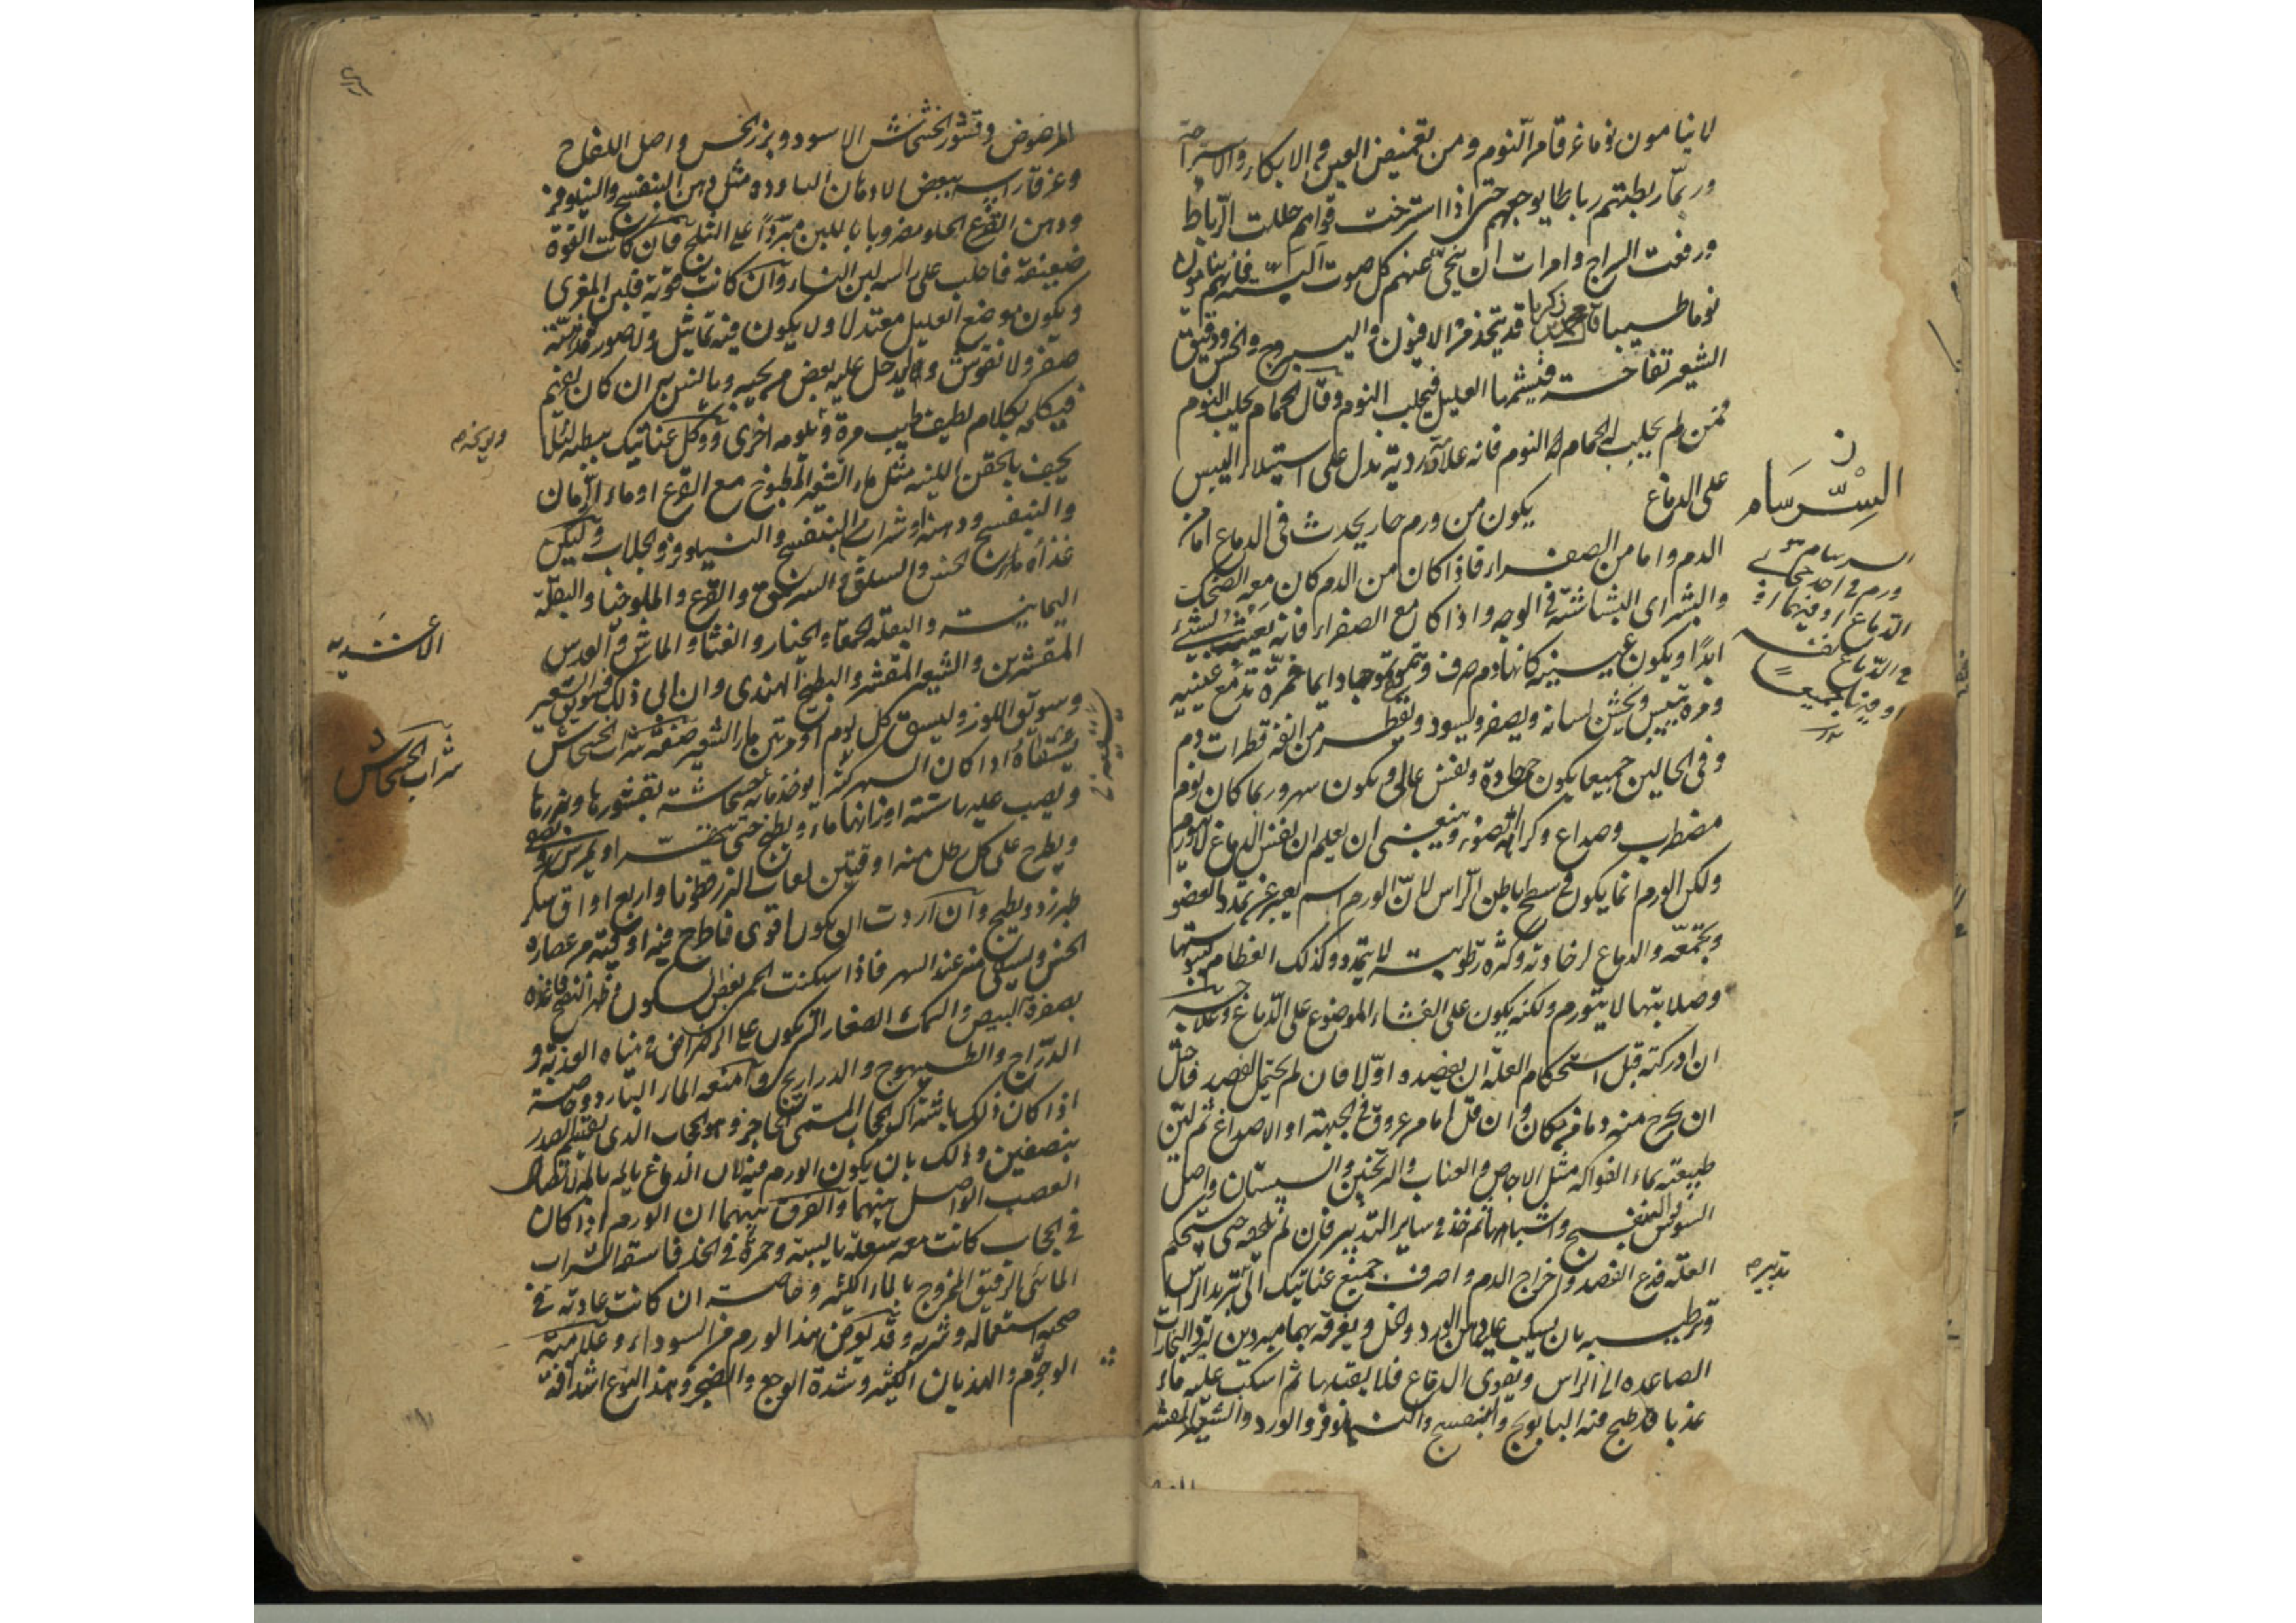 لا ينامون نوما غرقا من النوم ومن تغميض العين في الابكار والاستراحة
وربما ربطتهم رباطا يوجعهم حتى اذا استرخت قواهم حللت الرباط
ورفعت السراج وامرات ان ينحى عنهم كل صوت البتة فانهم ينامون
نوما طبيبا قال محمد بن زكريا قد يتخذ من الافيون واليبروج والخس ودقيق
الشعير تفاحة فيشمها العليل فيجلب النوم وقال الحمام يجلب النوم
فمن لم يجلب الحمام له النوم فانه علامة ردية تدل على استيلاء اليبس
على الدماغ يكون من ورم حار يحدث في الدماغ اما من
السرسام
الدم واما من الصفراء فاذا كان من الدم كان معه الضحك
السرسام هو
ورم في احد حجابي
الدماغ او فيهما او
في الدماغ نفسه
او فيها جميعا
والبشر اى البشاشة في الوجه واذا كان مع الصفراء فانه يعبث بالشئ
ابدا ويكون عينيه كانها دم صرف وتموجها دايما فمرة تدمع عينيه
ومرة تيبس ويخشن لسانه ويصفر ويسود ويقطر من انفه قطرات دم
وفي الحالين جميعا يكون حمى حادة ونفس عالى ويكون سهر وربما كان نوم
مضطرب وصداع وكراهة الضوء وينبغى ان يعلم ان نفس الدماغ لا يتورم
ولكن الورم انما يكون في سطح باطن الراس لان الورم اسم يعبر عن تمدد العضو
وتجمعه والدماغ لرخاوته وكثرة رطوبته لا يتمدد وكذلك العظام ليبوستها
وصلابتها لا يتورم ولكنه يكون على الغشاء الموضوع على الدماغ وعلاجه
ان ادركته قبل استحكام العلة ان يفصده اولا فان لم يحتمل الفصد فاحتل
ان يخرج منه دما في مكان وان قل اما من عروق في الجبهة او الاصداغ ثم لين
طبيعته بماء الفواكه مثل الاجاص والعناب والترنجبين والسبستان واصل
السوس والبنفسج واشباهها ثم خذ في ساير التدبير فان لم تلحقه حتى يستحكم
العلة فدع الفصد واخراج الدم واصرف جميع عنايتك الى تبريد الراس
تدبيره
وترطيبه بان يسكب عليه دهن الورد والخل ويغرقه بهما مبردين ليرد البخارات
الصاعدة الى الراس ويقوى الدماغ فلا يقبلها ثم اسكب عليه ماء
عذبا قد طبخ فيه البابونج والبنفسج والنيلوفر والورد والشعير المقشر
المرضوض وقشور الخشخاش الاسود وبزر الخس واصل اللفاح
وغرق راسه ببعض الادهان الباردة مثل دهن البنفسج والنيلوفر
ودهن القرع الحلو مضروبا باللبن مبردا على الثلج فان كانت القوة
ضعيفة فاحلب على راسه لبن النساء وان كانت قوية فلبن المعزى
ويكون موضع العليل معتدلا ولا يكون فيه تماثيل ولا صور
صفر ولا نقوش وليدخل عليه بعض من يحبه وبالنبيين ان كان يفهم
فيكلمه بكلام لطيف طيب مرة وتلومه اخرى ووكل عنايتك ببطنه لئلا
يجف بالحقن اللينة مثل ماء الشعير المطبوخ مع القرع او ماء الرمان
والبنفسج ودهنه او شراب البنفسج والنيلوفر والجلاب وليكن
غذاؤه ماء الخس والسلق والسرمق والقرع والملوخيا والبقلة
اليمانية والبقلة الحمقاء والخيار والقثاء والماش والعدس
الاغذية
المقشرين والشعير المقشر والبطيخ الهندى وان الى ذلك فسويق الشعير
وسويق اللوز وليسق كل يوم او مرتين ماء الشعير صفة شراب الخشخاش
شراب الخشخاش
اذا كان السهر كثيرا يوخذ ماية خشخاشة بقشورها وبزرها
ويصب عليها ستة اوزانها ماء ويطبخ حتى يتهرا ويمرس ويصفى
ويطرح على كل رطل منه اوقيتين لعاب البزرقطونا واربع اواق سكر
طبرزد ويطبخ وان اردت ان يكون اقوى فاطرح فيه اوقية من عصارة
الخس ويسقى منه عند السهر فاذا سكنت الحمى بعض السكون وظهر النضج فاغذه
بصفرة البيض والسمك الصغار التي يكون على الرضراض في مياه العذبة و
الدراج والطيهوج والدراريج وامنعه الماء البارد وخاصة
اذا كان ذلك باشتراك الحجاب المسمى الحاجز وهو الحجاب الذى يقسم الصدر
بنصفين وذلك بان يكون الورم فيه لان الدماغ يالم بالمه لاتصال
العصب الواصل بينهما والفرق بينهما ان الورم اذا كان
في الحجاب كانت معه سعلة يابسة وحمرة في الخد فاسقه الشراب
المائى الرقيق الممزوج بالماء الكثير وخاصة ان كانت عادته في
صحته استعماله وشربه وقد يعرض هذا الورم من السوداء وعلامته
الوجوم والهذيان الكثير وشدة الوجع والضجر وهذا النوع اشد آفة